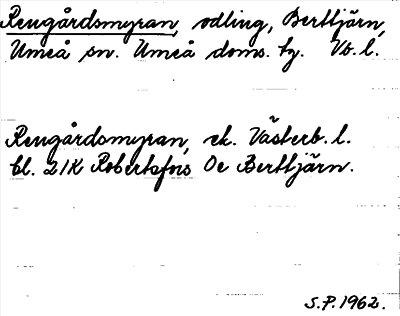 Rengårdsmyran, odling, Berttjärn,
Umeå sn. Umeå doms. tg. Vb. l.
Rengårdsmyran, ek. Västerb. l.
bl. 21K Robertsfors Oe Berttjärn.
S.P. 1962.